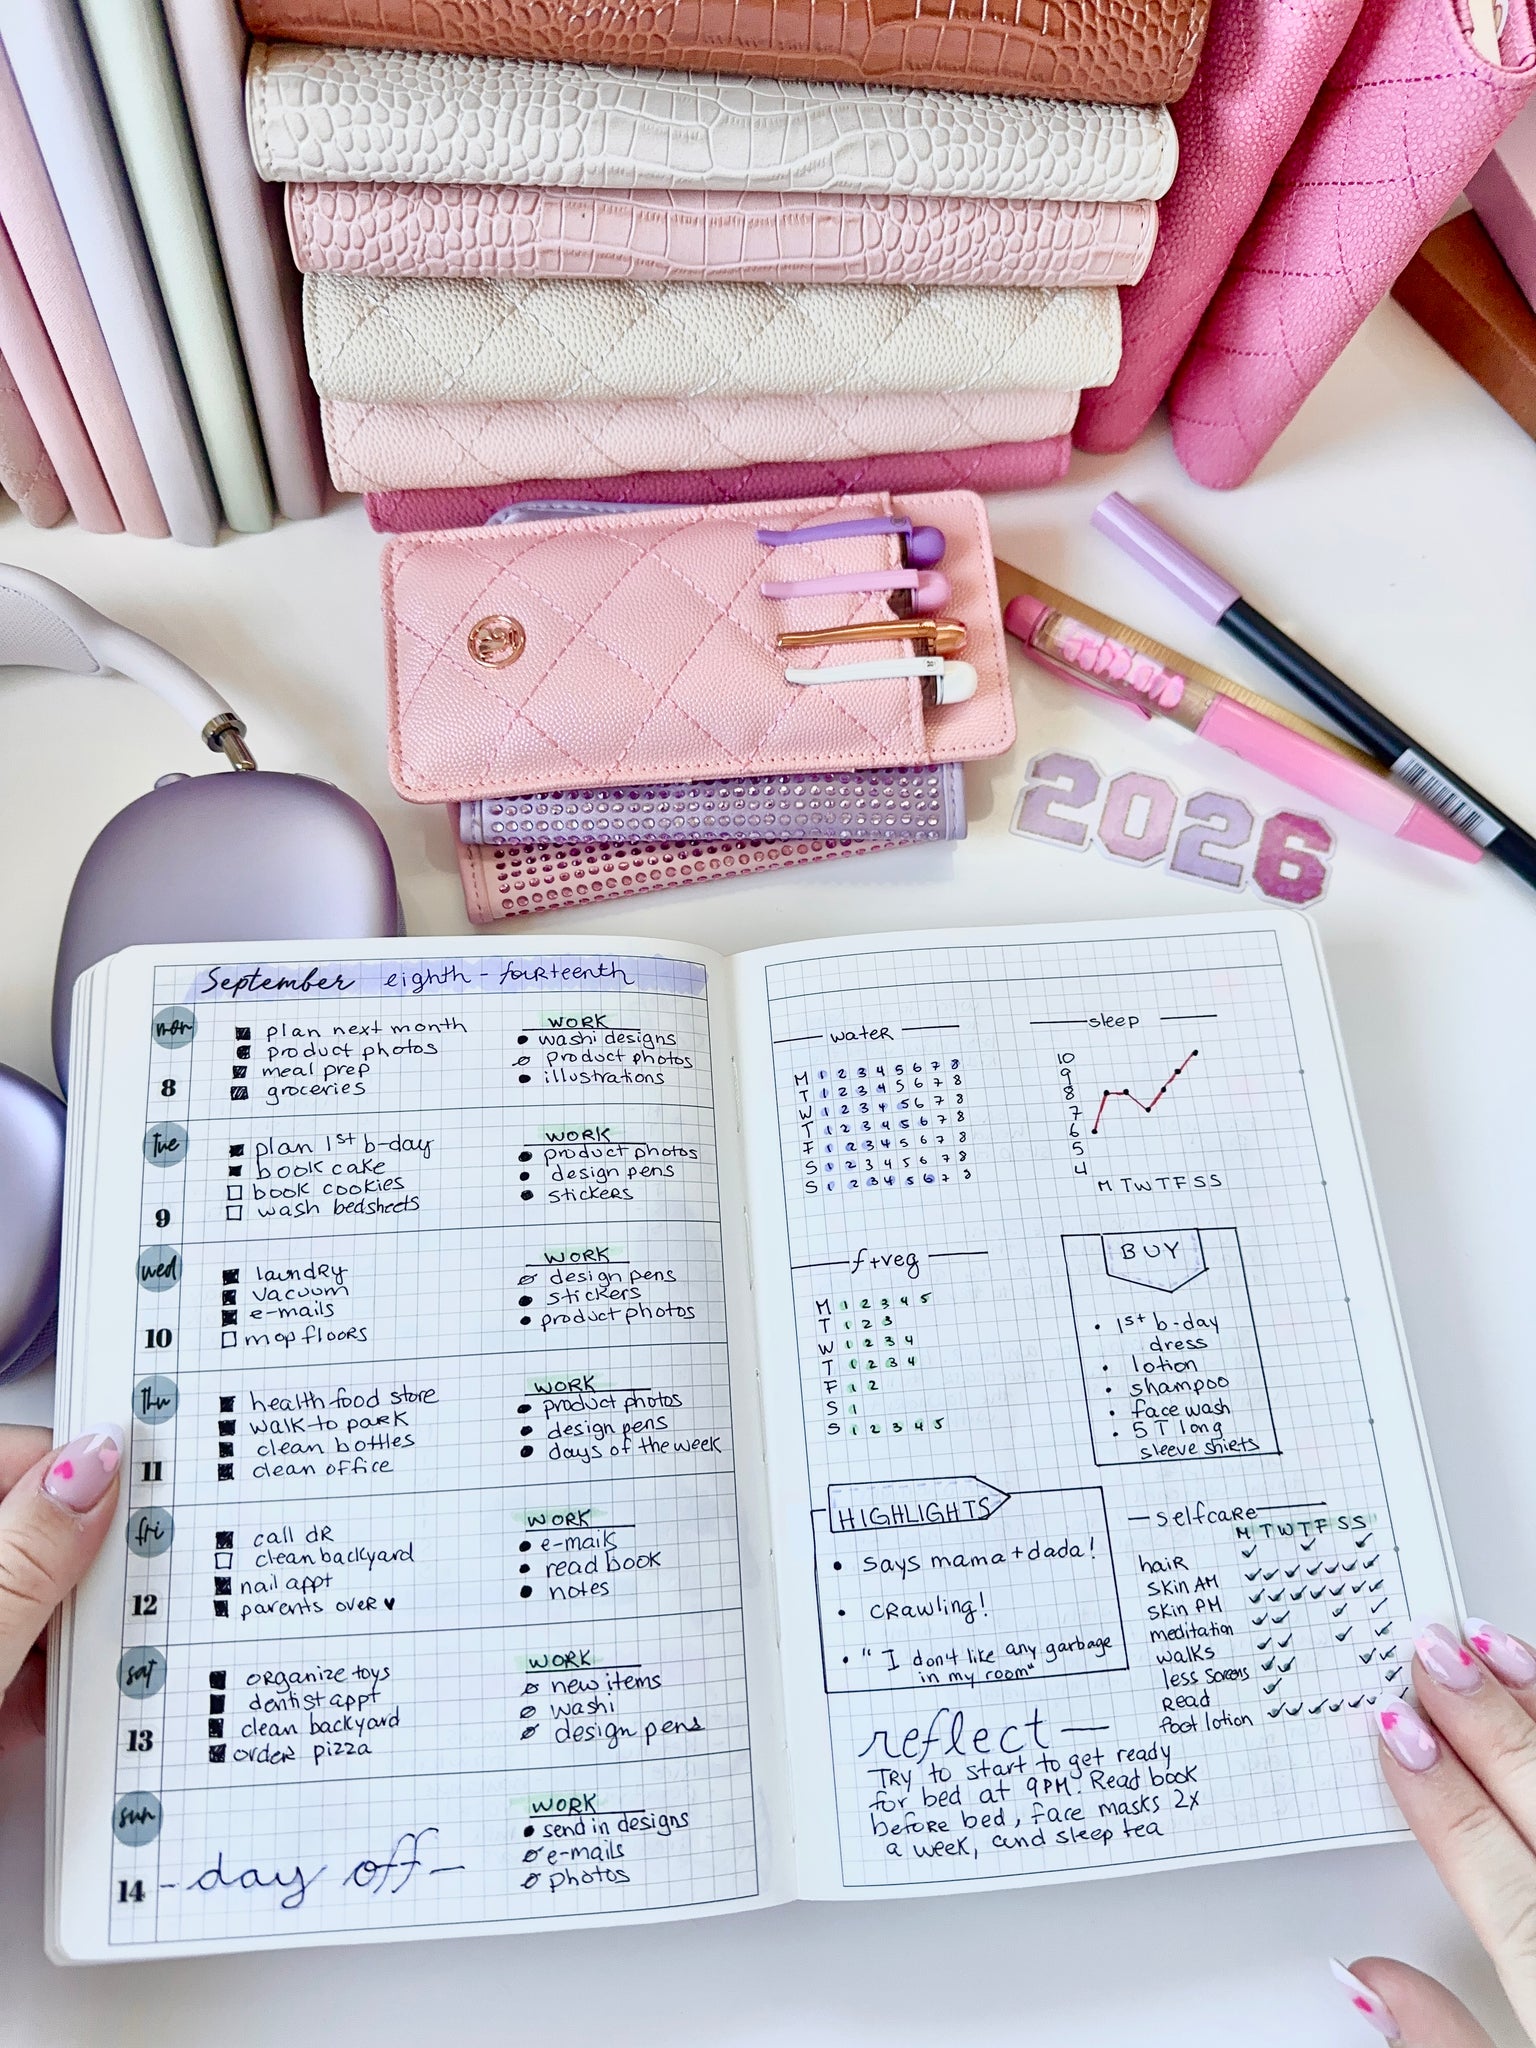 2026
September eighth - fourteenth
mon
8
plan next month
product photos
meal prep
groceries
WORK
washi designs
product photos
illustrations
tue
9
plan 1st b-day
book cake
book cookies
wash bedsheets
WORK
product photos
design pens
stickers
wed
10
laundry
vacuum
e-mails
mop floors
WORK
design pens
stickers
product photos
thu
11
health food store
walk to park
clean bottles
clean office
WORK
product photos
design pens
days of the week
fri
12
call dr
clean backyard
nail appt
parents over ♥
WORK
e-mails
read book
notes
sat
13
organize toys
dentist appt
clean backyard
order pizza
WORK
new items
washi
design pens
sun
14
- day off -
WORK
send in designs
e-mails
photos
water
M 1 2 3 4 5 6 7 8
T 1 2 3 4 5 6 7 8
W 1 2 3 4 5 6 7 8
T 1 2 3 4 5 6 7 8
F 1 2 3 4 5 6 7 8
S 1 2 3 4 5 6 7 8
S 1 2 3 4 5 6 7 8
sleep
10
9
8
7
6
5
4
M T W T F S S
f+veg
M 1 2 3 4 5
T 1 2 3
W 1 2 3 4
T 1 2 3 4
F 1 2
S 1
S 1 2 3 4 5
BUY
• 1st b-day
dress
• lotion
• shampoo
• face wash
• 5 T long
sleeve shirts
HIGHLIGHTS
• says mama + dada!
• crawling!
• "I don't like any garbage
in my room"
selfcare
M T W T F S S
hair
skin AM
skin PM
meditation
walks
less screens
Read
foot lotion
reflect
Try to start to get ready
for bed at 9PM. Read book
before bed, face masks 2x
a week, and sleep tea